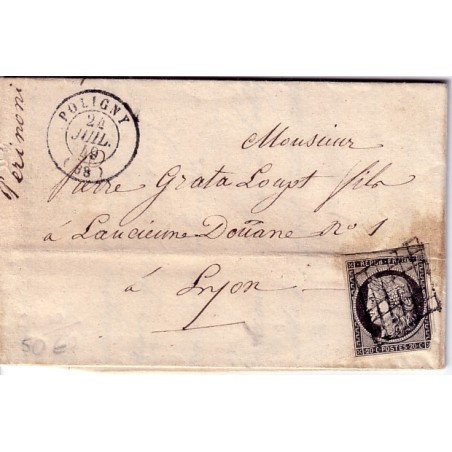 Perinoni
POLIGNY
24
JUIL.
49
(38)
Monsieur
Pierre Grata Loupt fils
à L'ancienne Doüane No 1
à Lyon
REPUB. FRANC.
20 C POSTES 20 C
50 €